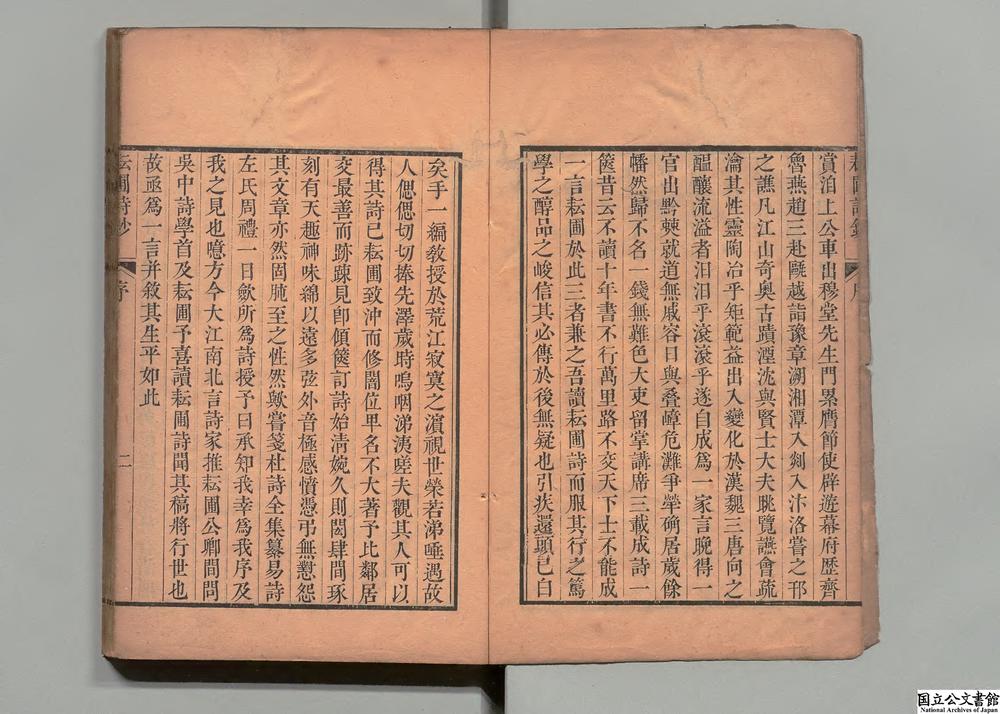 賞泊上公車出穆堂先生門累膺節使辟遊幕府歷齊
魯燕趙三赴甌越詣豫章溯湘潭入剡入汴洛嘗之邗
之譙凡江山奇奧古蹟湮沈與賢士大夫眺覽讌會疏
瀹其性靈陶冶乎矩範益出入變化於漢魏三唐向之
醞釀流溢者汨汨乎滾滾乎遂自成爲一家言晚得一
官出黔棘就道無戚容日與叠嶂危灘爭犖确居歲餘
幡然歸不名一錢無難色大吏留掌講席三載成詩一
篋昔云不讀十年書不行萬里路不交天下士不能成
一言耘圃於此三者兼之吾讀耘圃詩而服其行之篤
學之醇品之峻信其必傳於後無疑也引疾還頭已白
矣手一編敎授於荒江寂寞之濵視世榮若涕唾遇故
人偲偲切切捧先澤歲時嗚咽涕洟嗟夫觀其人可以
得其詩已耘圃致沖而修闇位卑名不大著予比鄰居
交最善而跡踈見卽傾篋訂詩始淸婉久則閎肆間琢
刻有天趣神味綿以遠多弦外音極感憤憑弔無懟怨
其文章亦然固肫至之性然歟嘗箋杜詩全集纂易詩
左氏周禮一日斂所爲詩授予曰承知我幸爲我序及
我之見也噫方今大江南北言詩家推耘圃公卿間問
吳中詩學首及耘圃予喜讀耘圃詩聞其稿將行世也
故亟爲一言并敘其生平如此
耘圃詩鈔
序
二
国立公文書館
National Archives of Japan